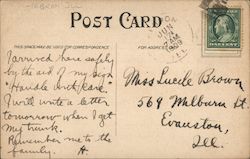 POST CARD
THIS SPACE MAY BE USED FOR CORRESPONDENCE
FOR ADDRESS
JUN
I arrived here safely
by the aid of my sign
"Handle with Care."
I will write a letter
tomorrow when I get
my trunk.
Remember me to the
family. A
Miss Lucile Brown
569 Milburn St.
Evanston,
Ill.